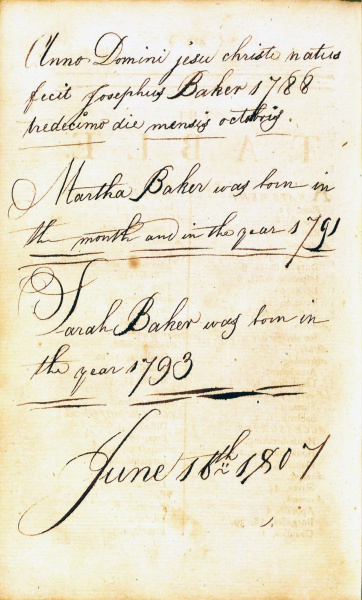 Anno Domini jesu christi natus
fecit Josephus Baker 1788
tredecimo die mensis octobris.
Martha Baker was born in
the month and in the year 1791
Sarah Baker was born in
the year 1793
June 18th 1807